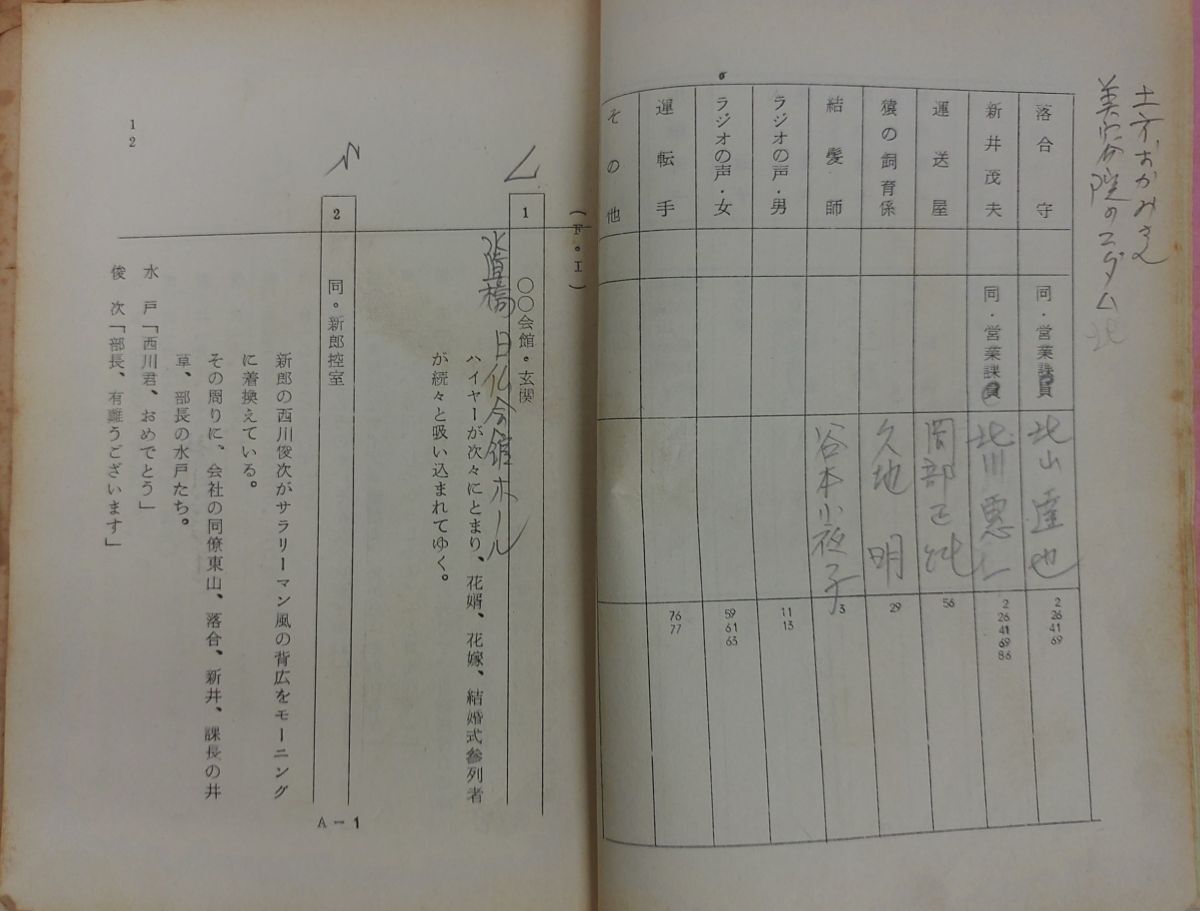 土方おかみさん
落合守 同・営業課員 北山達也 2 26 41 69
新井茂夫 同・営業課員 北川恵仁 2 26 41 69 86
運送屋 岡部正純 56
猿の飼育係 久地明 29
結髪師 谷本小夜子 3
ラジオの声・男 11 13
ラジオの声・女 59 61 63
運転手 76 77
その他
6
(F・I)
1 〇〇会館・玄関
水道橋日仏会館ホール
ハイヤーが次々にとまり、花婿、花嫁、結婚式参列者
が続々と吸い込まれてゆく。
2 同・新郎控室
新郎の西川俊次がサラリーマン風の背広をモーニング
に着換えている。
その周りに、会社の同僚東山、落合、新井、課長の井
草、部長の水戸たち。
水戸「西川君、おめでとう」
俊次「部長、有難うございます」
12
A-1